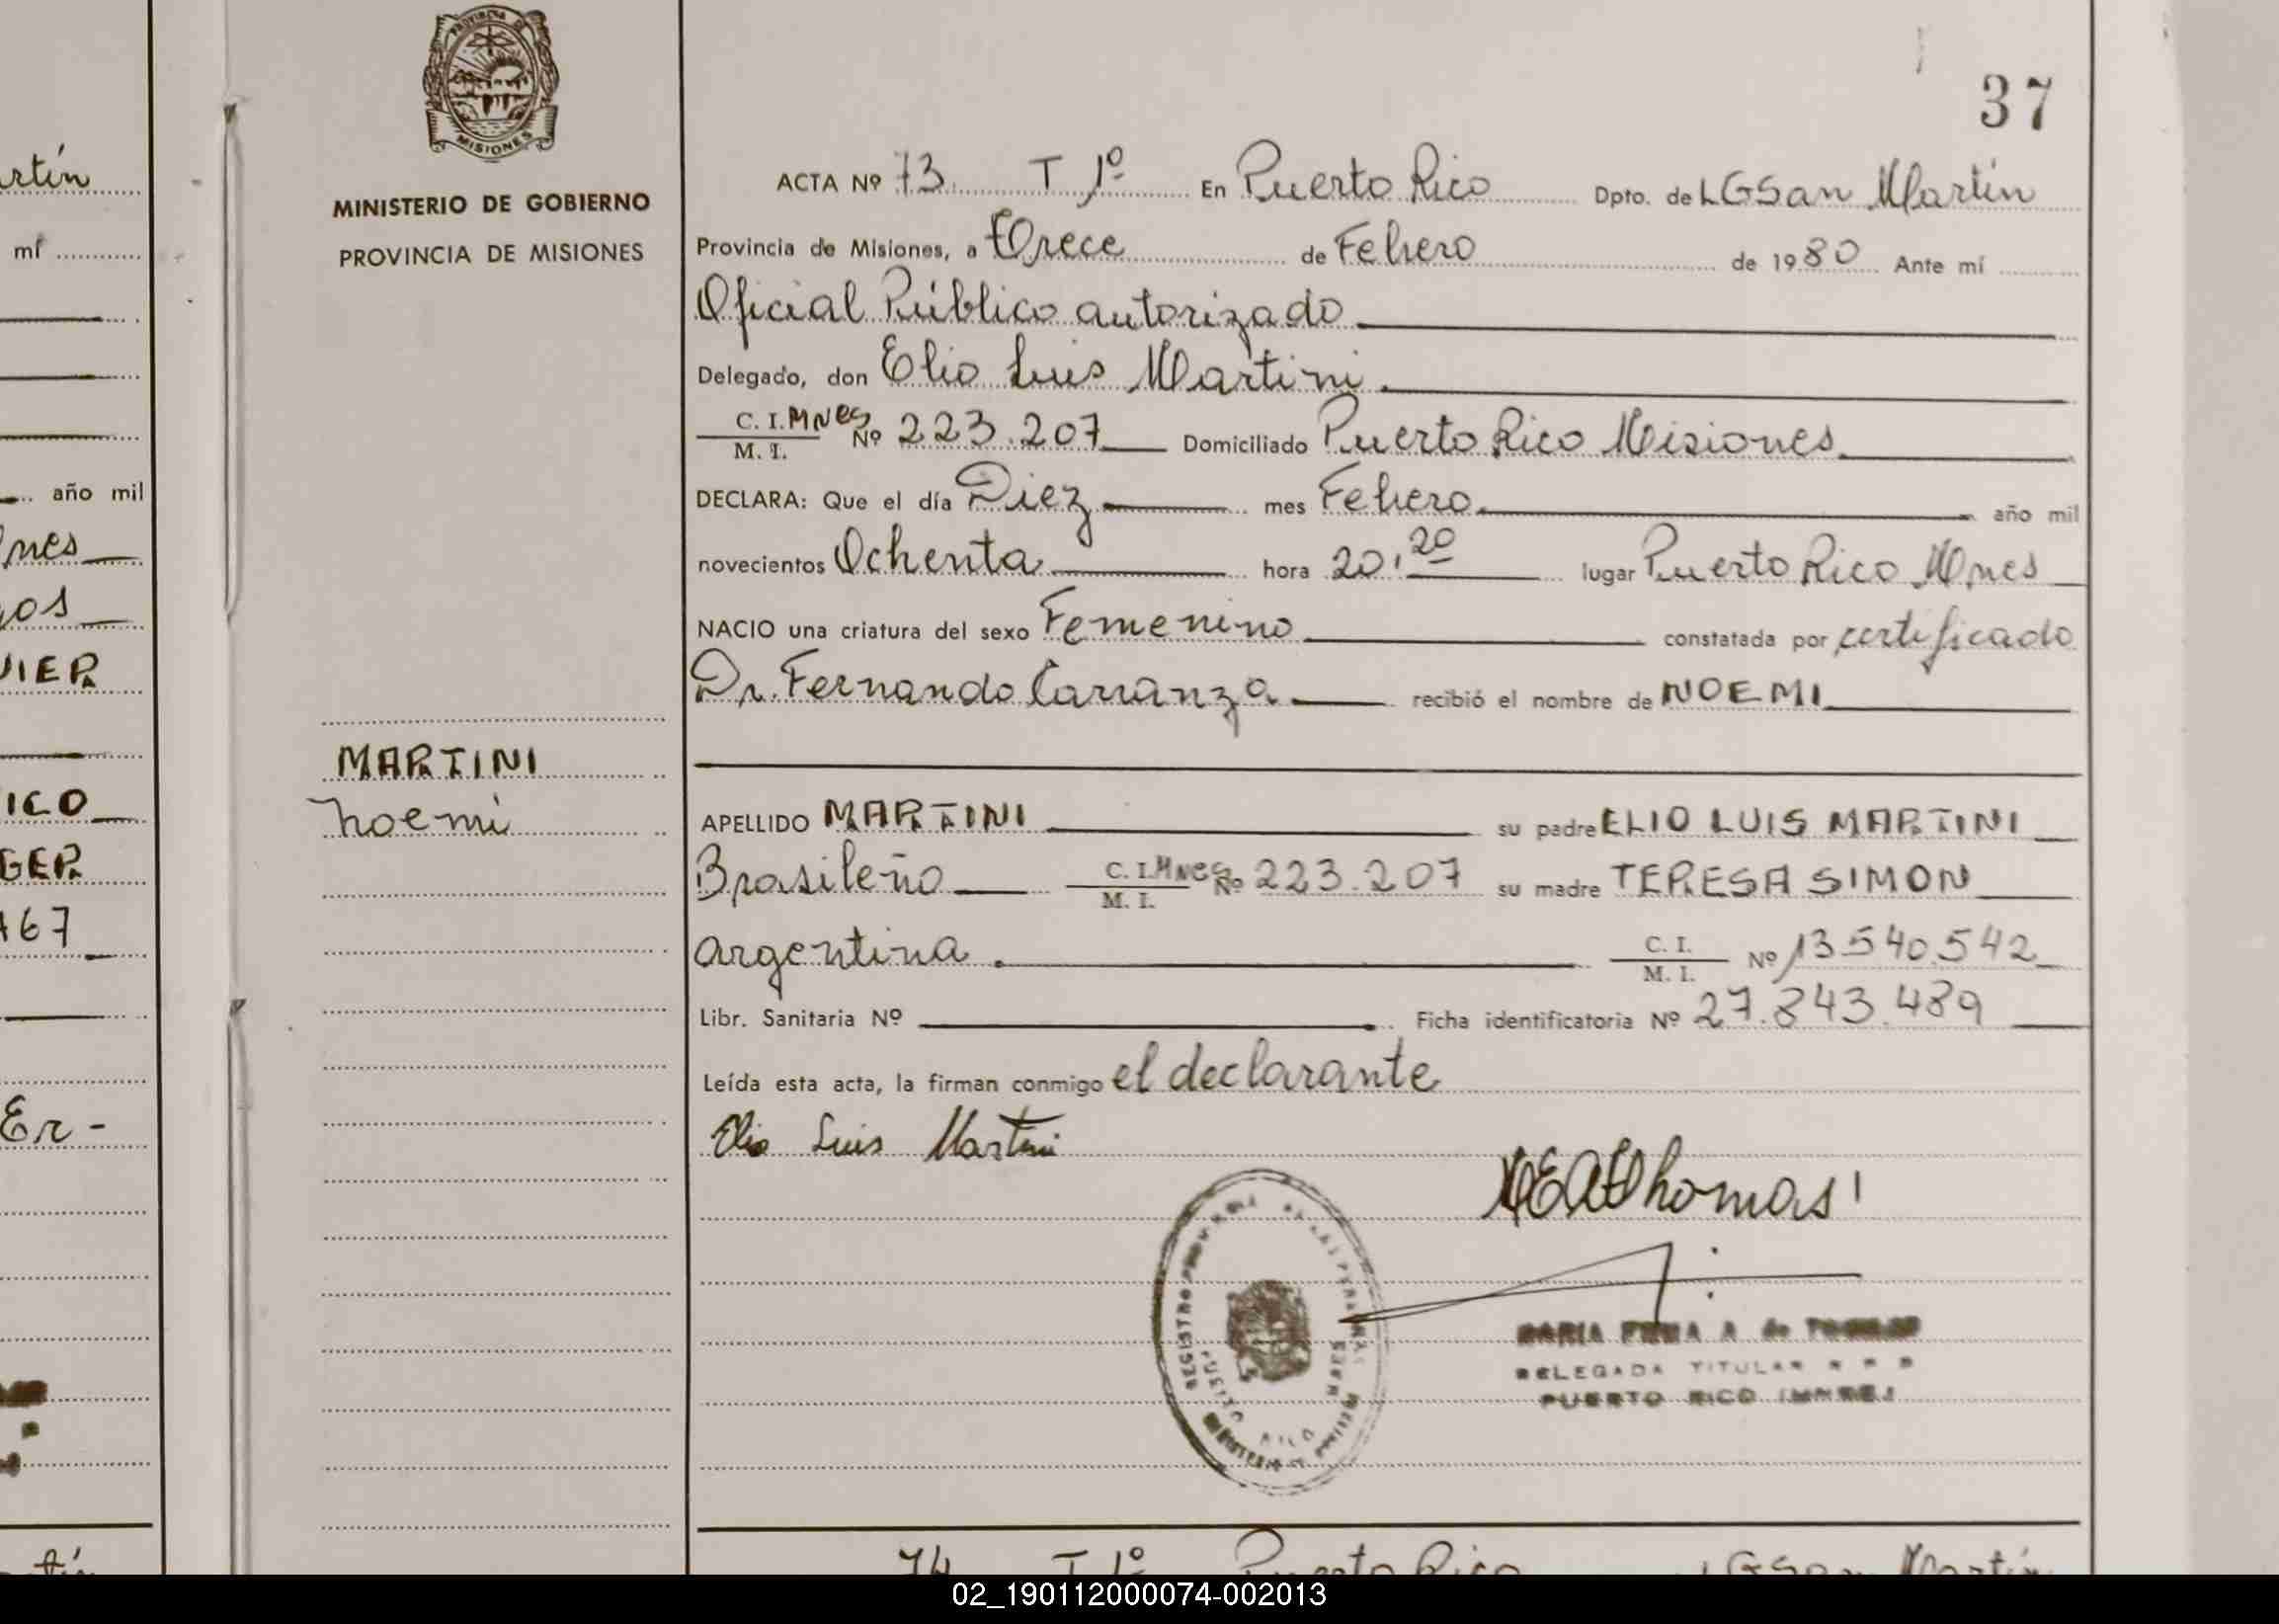 rtín
mí
año mil
nes
gos
VIER
ICO
GER
467
Er-
PROVINCIA DE
MISIONES
MINISTERIO DE GOBIERNO
PROVINCIA DE MISIONES
MARTINI
Noemi
37
ACTA Nº 73 T 1º En Puerto Rico Dpto. de LGSan Martín
Provincia de Misiones, a Trece de Febrero de 1980 Ante mí
Oficial Público autorizado
Delegado, don Elio Luis Martini
C. I. Mnes
M. I. Nº 223.207 Domiciliado Puerto Rico Misiones
DECLARA: Que el día Diez mes Febrero año mil
novecientos Ochenta hora 20,20 lugar Puerto Rico Mnes
NACIO una criatura del sexo Femenino constatada por certificado
Dr. Fernando Carranza recibió el nombre de NOEMI
APELLIDO MARTINI su padre ELIO LUIS MARTINI
Brasileño C. I. Mnes M. I. Nº 223.207 su madre TERESA SIMON
argentina. C. I. M. I. Nº 13.540.542
Libr. Sanitaria Nº Ficha identificatoria Nº 27.843.489
Leída esta acta, la firman conmigo el declarante
Elio Luis Martini
Thomas
REGISTRO PROVINCIAL DE LAS PERSONAS
PUERTO RICO
MARIA A de
DELEGADA TITULAR R P
PUERTO RICO
74 T 1º Puerto Rico LGSan Martín
02_190112000074-002013